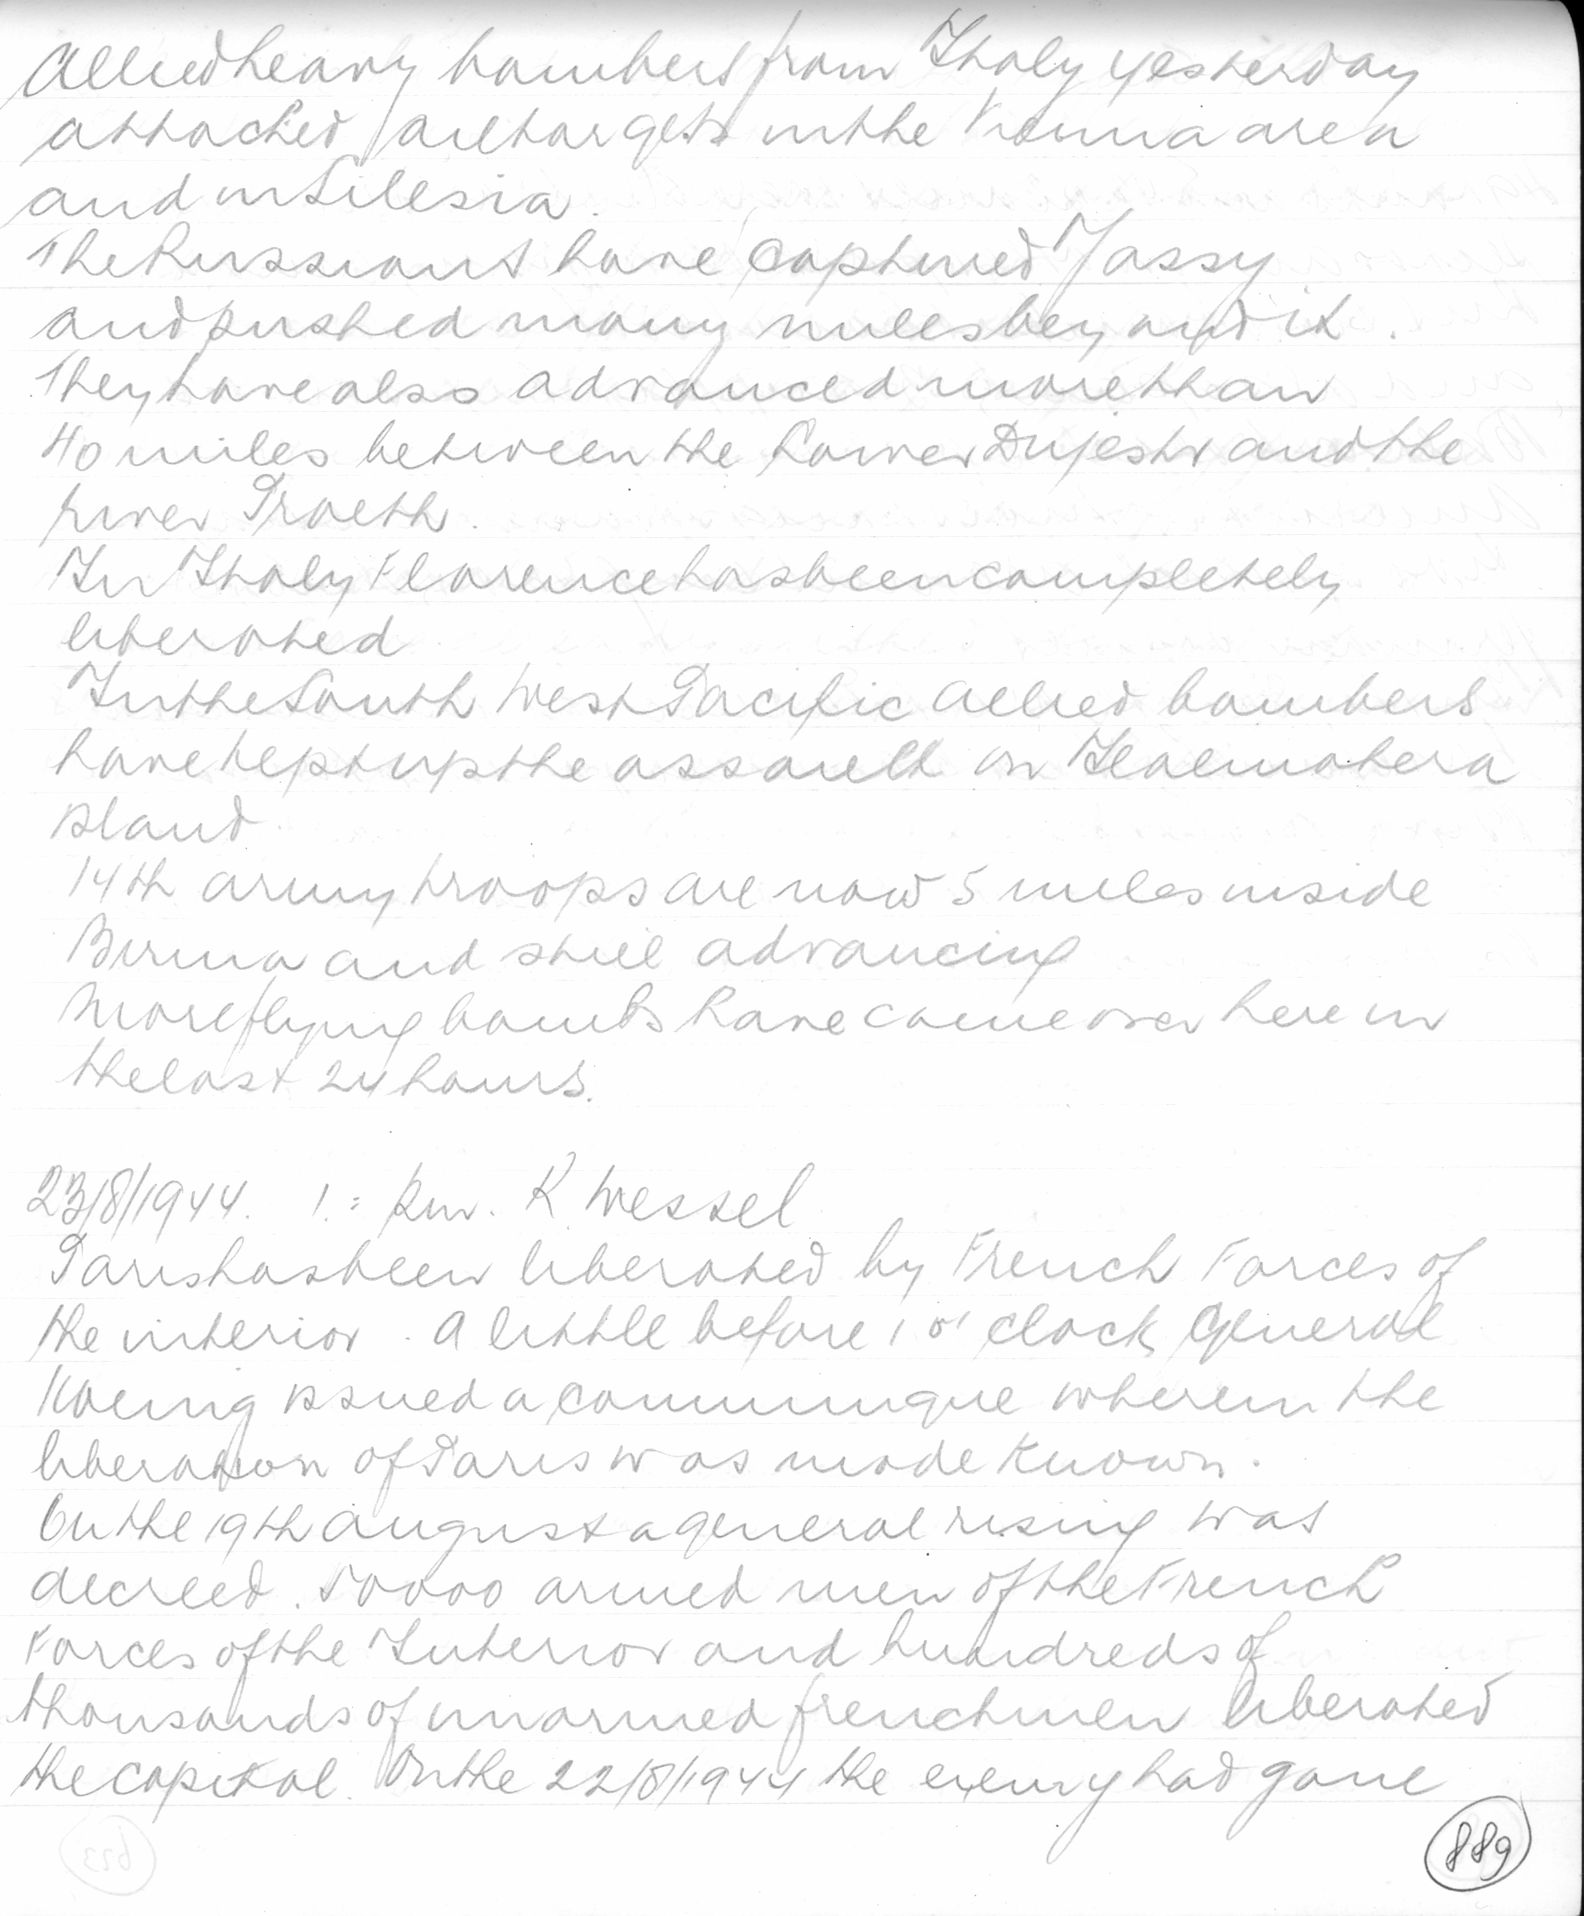 Allied heavy bombers from Italy yesterday
attacked oil targets in the Vienna area
and in Silesia.
The Russians have captured Jassy
and pushed many miles beyond it.
They have also advanced more than
40 miles between the Lower Dnjestr and the
river Proeth.
In Italy Florence has been completely
liberated
In the South West Pacific Allied bombers
have kept up the assault on Halmahera
island
14th army troops are now 5 miles inside
Birma and still advancing
More flying bombs have come over here in
the last 24 hours.
23/8/1944. 1.= p.m. K Wessel
Paris has been liberated by French Forces of
the interior. A little before 1 o'clock General
Koenig issued a communique wherein the
liberation of Paris was made known.
On the 19th august a general rising was
decreed. 50000 armed men of the French
Forces of the Interior and hundreds of
thousands of unarmed frenchmen liberated
the capital. On the 22/8/1944 the enemy had gone
889